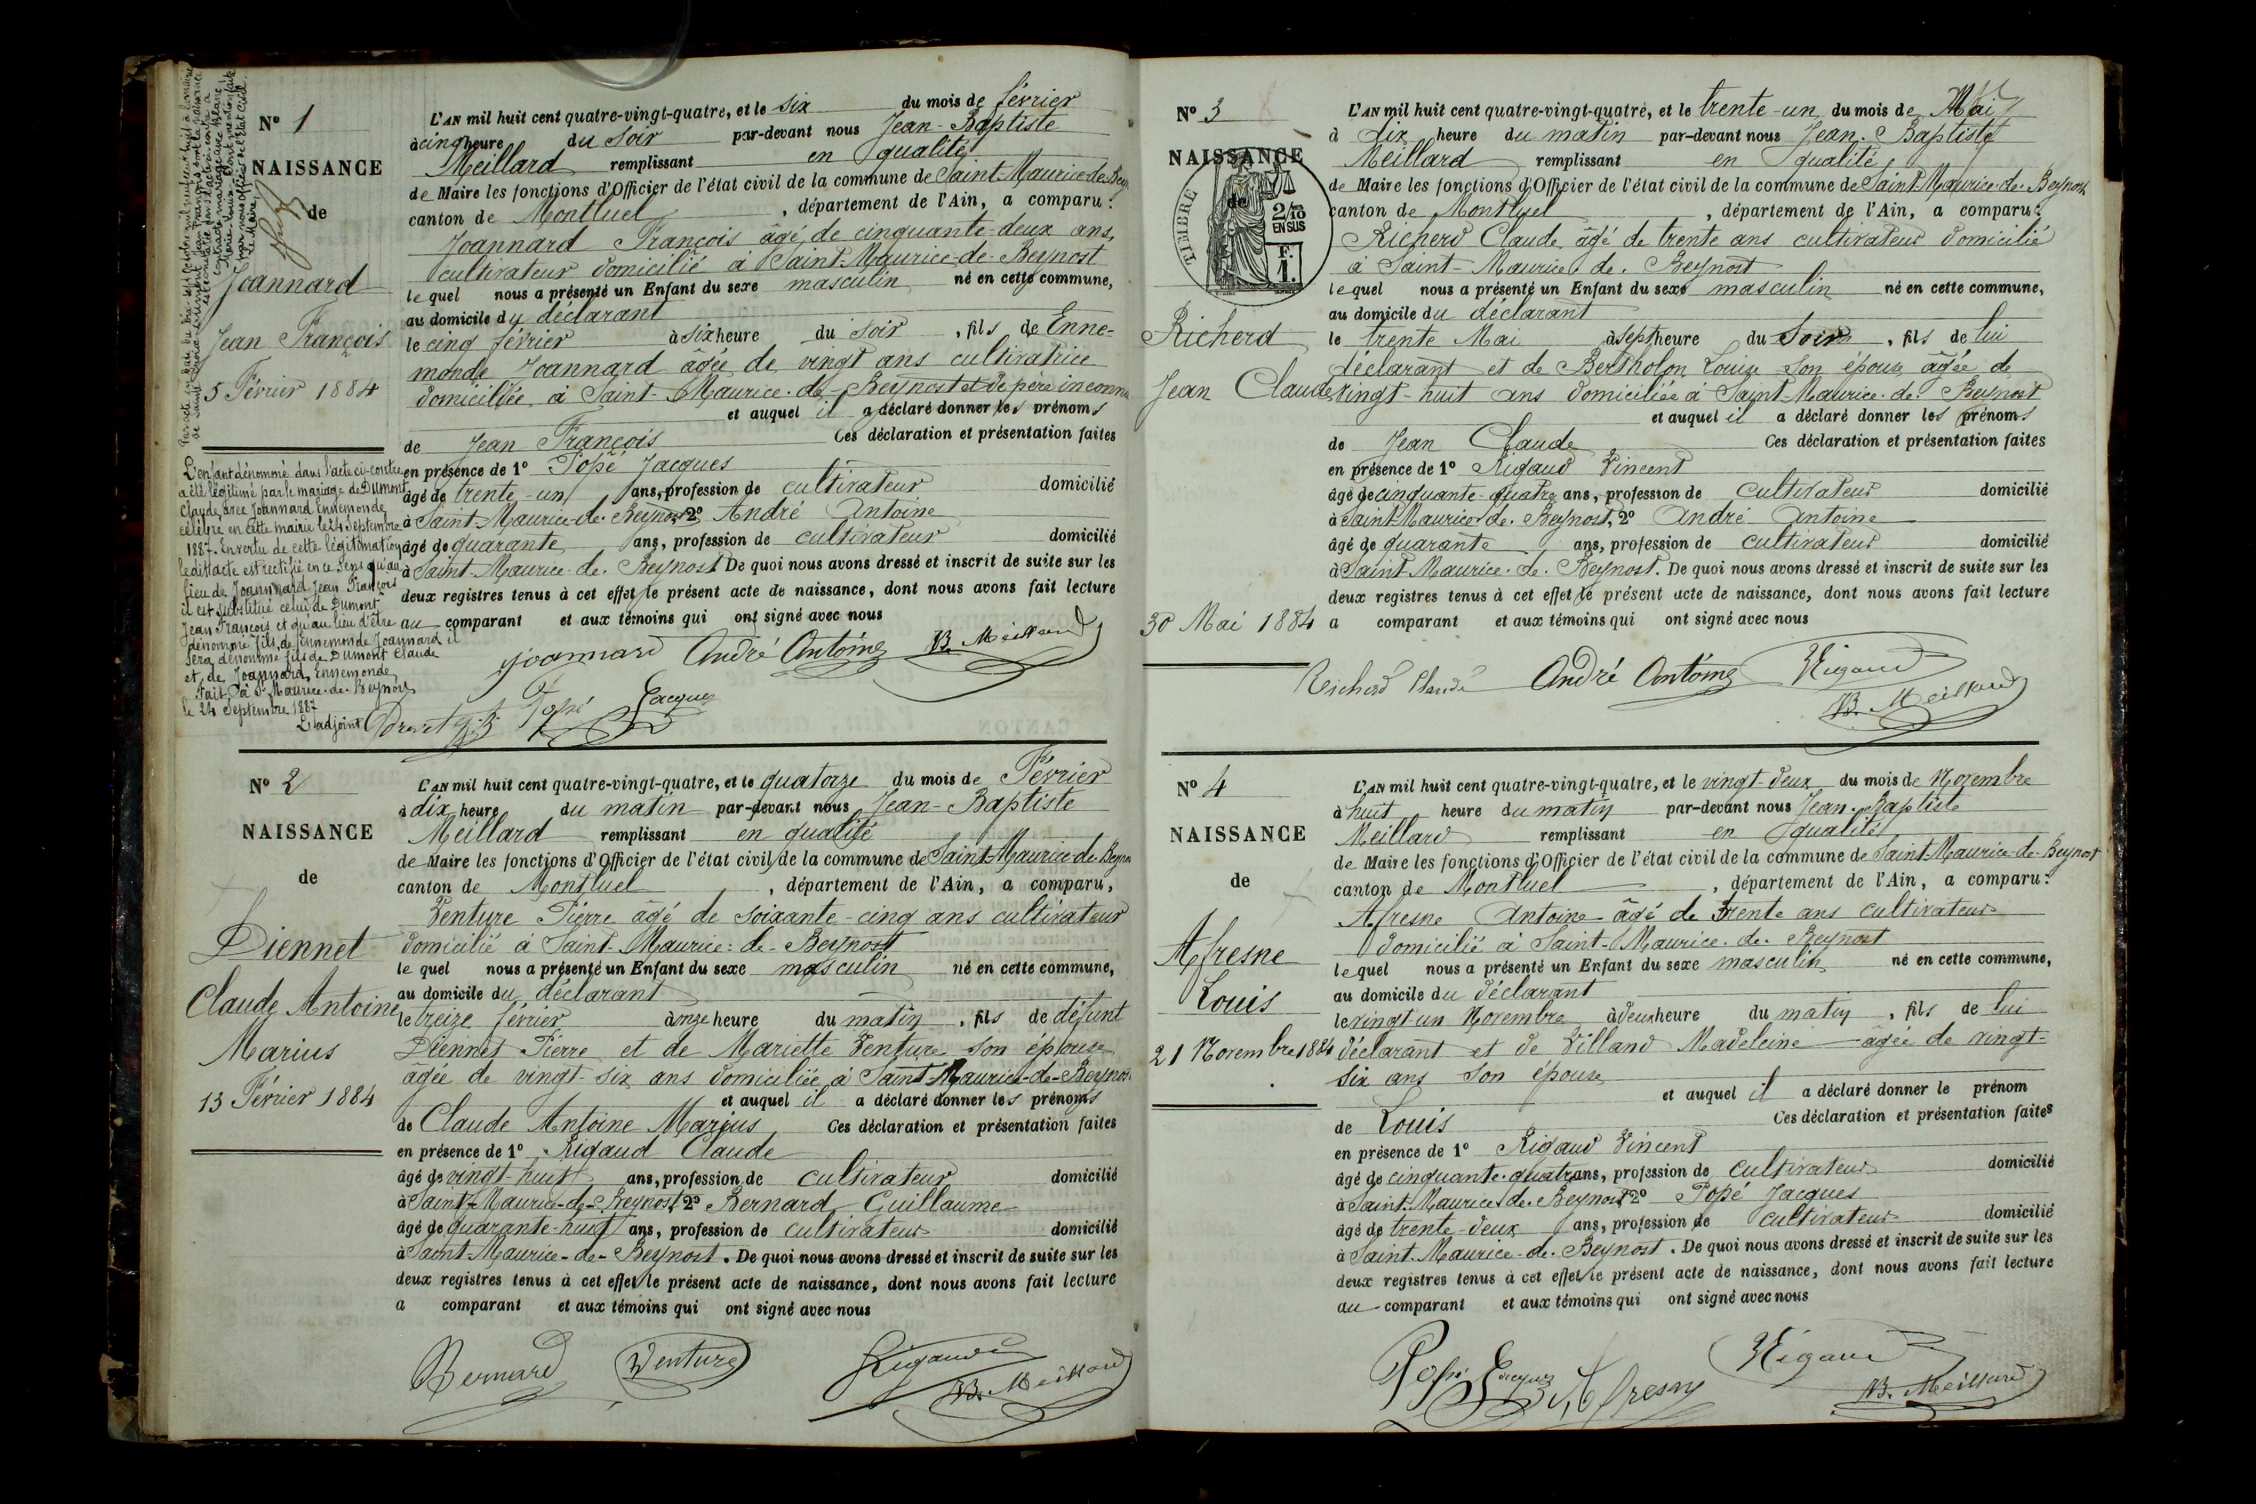 N° 1
NAISSANCE
de
Joannard
Jean François
5 Février 1884
L'enfant dénommé dans l'acte ci-contre
a été légitimé par le mariage de Dumont
Claude, avec Joannard Ennemonde
célébré en cette mairie le 24 Septembre
1887. En vertu de cette légitimation
ledit acte est rectifié en ce sens qu'au
lieu de Joannard Jean François
il est substitué celui de Dumont
Jean François et qu'au lieu d'être
dénommé fils de Ennemonde Joannard il
sera dénommé fils de Dumont Claude
et de Joannard Ennemonde
Fait à St Maurice-de-Beynost
le 24 Septembre 1887
L'adjoint
L'AN mil huit cent quatre-vingt-quatre, et le six du mois de février
à cinq heure du soir par-devant nous Jean-Baptiste
Meillard remplissant en qualité
de Maire les fonctions d'Officier de l'état civil de la commune de Saint-Maurice-de-Bey
canton de Montluel, département de l'Ain, a comparu:
Joannard François âgé de cinquante-deux ans,
cultivateur domicilié à Saint-Maurice-de-Beynost
lequel nous a présenté un Enfant du sexe masculin né en cette commune,
au domicile du déclarant
le cinq février à six heure du soir, fils de Enne-
monde Joannard âgée de vingt ans cultivatrice
domiciliée à Saint-Maurice-de-Beynost et de père inconnu
et auquel il a déclaré donner les prénoms
de Jean François Ces déclaration et présentation faites
en présence de 1° Popé Jacques
âgé de trente-un ans, profession de cultivateur domicilié
à Saint-Maurice-de-Beynost 2° André Antoine
âgé de quarante ans, profession de cultivateur domicilié
à Saint-Maurice-de-Beynost De quoi nous avons dressé et inscrit de suite sur les
deux registres tenus à cet effet le présent acte de naissance, dont nous avons fait lecture
au comparant et aux témoins qui ont signé avec nous
Joannard André Antoine B. Meillard
Popé Jacques
N° 2
NAISSANCE
de
Diennet
Claude Antoine
Marius
13 Février 1884
L'AN mil huit cent quatre-vingt-quatre, et le quatorze du mois de Février
à dix heure du matin par-devant nous Jean-Baptiste
Meillard remplissant en qualité
de Maire les fonctions d'Officier de l'état civil de la commune de Saint-Maurice-de-Beyn
canton de Montluel, département de l'Ain, a comparu,
Venture Pierre âgé de soixante-cinq ans cultivateur
domicilié à Saint-Maurice-de-Beynost
lequel nous a présenté un Enfant du sexe masculin né en cette commune,
au domicile du déclarant
le treize février à onze heure du matin, fils de défunt
Diennet Pierre et de Mariette Venture son épouse
âgée de vingt-six ans domiciliée à Saint-Maurice-de-Beynos
et auquel il a déclaré donner les prénoms
de Claude Antoine Marius Ces déclaration et présentation faites
en présence de 1° Rigaud Claude
âgé de vingt-huit ans, profession de cultivateur domicilié
à Saint-Maurice-de-Beynost 2° Bernard Guillaume
âgé de quarante-huit ans, profession de cultivateur domicilié
à Saint-Maurice-de-Beynost. De quoi nous avons dressé et inscrit de suite sur les
deux registres tenus à cet effet le présent acte de naissance, dont nous avons fait lecture
a comparant et aux témoins qui ont signé avec nous
Bernard Venture Rigaud
B. Meillard
N° 3
NAISSANCE
de
TIMBRE
2/10
EN SUS
F.
1.
Richerd
Jean Claude
30 Mai 1884
L'AN mil huit cent quatre-vingt-quatre, et le trente-un du mois de Mai
à dix heure du matin par-devant nous Jean-Baptiste
Meillard remplissant en qualité
de Maire les fonctions d'Officier de l'état civil de la commune de Saint-Maurice-de-Beynost
canton de Montluel, département de l'Ain, a comparu:
Richerd Claude âgé de trente ans cultivateur domicilié
à Saint-Maurice-de-Beynost
lequel nous a présenté un Enfant du sexe masculin né en cette commune,
au domicile du déclarant
le trente Mai à sept heure du Soir, fils de lui
déclarant et de Bertholon Louise son épouse âgée de
vingt-huit ans domiciliée à Saint-Maurice-de-Beynost
et auquel il a déclaré donner les prénoms
de Jean Claude Ces déclaration et présentation faites
en présence de 1° Rigaud Vincent
âgé de cinquante-quatre ans, profession de cultivateur domicilié
à Saint-Maurice-de-Beynost, 2° André Antoine
âgé de quarante ans, profession de cultivateur domicilié
à Saint-Maurice-de-Beynost. De quoi nous avons dressé et inscrit de suite sur les
deux registres tenus à cet effet le présent acte de naissance, dont nous avons fait lecture
a comparant et aux témoins qui ont signé avec nous
Richerd Claude André Antoine Rigaud
B. Meillard
N° 4
NAISSANCE
de
Afresne
Louis
21 Novembre 1884
L'AN mil huit cent quatre-vingt-quatre, et le vingt-deux du mois de Novembre
à huit heure du matin par-devant nous Jean-Baptiste
Meillard remplissant en qualité
de Maire les fonctions d'Officier de l'état civil de la commune de Saint-Maurice-de-Beynost
canton de Montluel, département de l'Ain, a comparu:
Afresne Antoine âgé de trente ans cultivateur
domicilié à Saint-Maurice-de-Beynost
lequel nous a présenté un Enfant du sexe masculin né en cette commune,
au domicile du déclarant
le vingt un Novembre à deux heure du matin, fils de lui
déclarant et de Villand Madeleine âgée de vingt-
six ans son épouse
et auquel il a déclaré donner le prénom
de Louis Ces déclaration et présentation faites
en présence de 1° Rigaud Vincent
âgé de cinquante-quatre ans, profession de cultivateur domicilié
à Saint-Maurice-de-Beynost 2° Popé Jacques
âgé de trente-deux ans, profession de cultivateur domicilié
à Saint-Maurice-de-Beynost. De quoi nous avons dressé et inscrit de suite sur les
deux registres tenus à cet effet le présent acte de naissance, dont nous avons fait lecture
au comparant et aux témoins qui ont signé avec nous
Popé Jacques Afresne Rigaud
B. Meillard